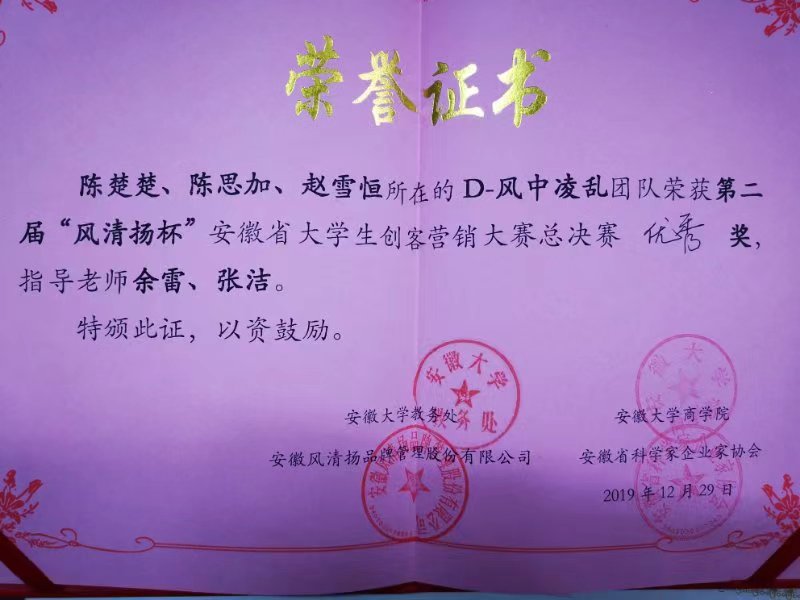 荣誉证书
陈楚楚、陈思加、赵雪恒所在的 D-风中凌乱团队荣获第二
届“风清扬杯”安徽省大学生创客营销大赛总决赛 优秀 奖，
指导老师余雷、张洁。
特颁此证，以资鼓励。
安徽大学
教务处
安徽大学教务处
安徽大学商学院
安徽风清扬品牌管理股份有限公司
安徽省科学家企业家协会
2019 年 12 月 29 日